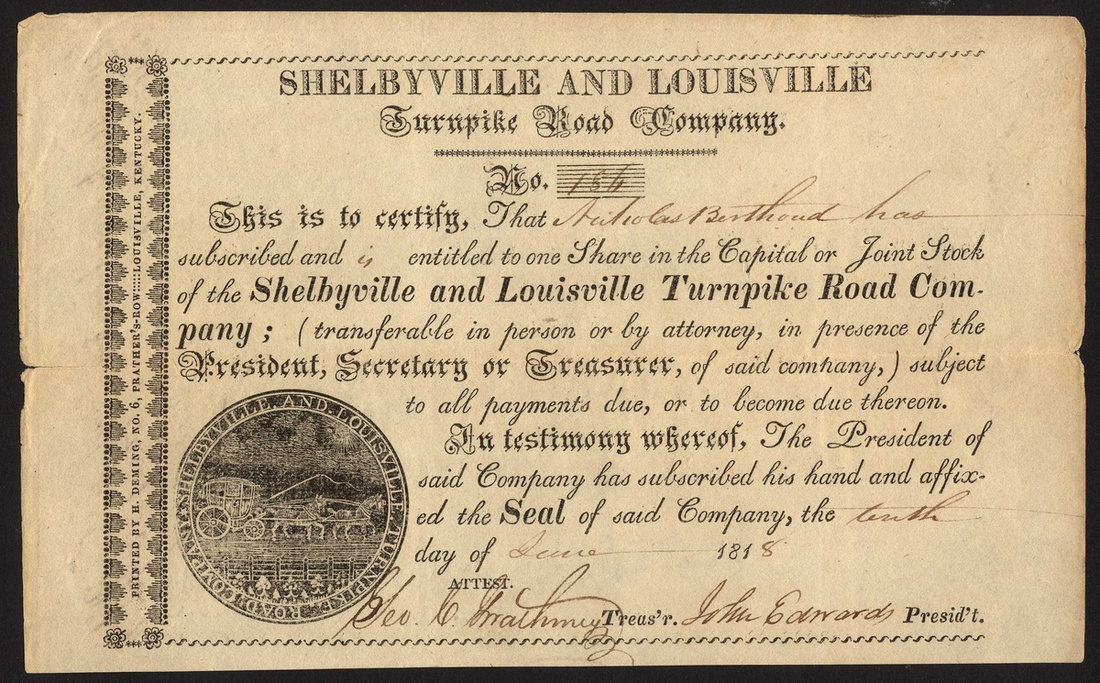 SHELBYVILLE AND LOUISVILLE
Turnpike Road Company.
No. 186
This is to certify, That Nicholas Berthoud has
subscribed and is entitled to one Share in the Capital or Joint Stock
of the Shelbyville and Louisville Turnpike Road Com-
pany; (transferable in person or by attorney, in presence of the
President, Secretary or Treasurer, of said company,) subject
to all payments due, or to become due thereon.
In testimony whereof, The President of
said Company has subscribed his hand and affix-
ed the Seal of said Company, the tenth
day of June 1818
ATTEST.
Geo. C. Treas'r. John Edwards Presid't.
SHELBYVILLE AND LOUISVILLE TURNPIKE ROAD COMPANY
PRINTED BY H. DEMING, NO. 6, PRATHER'S-ROW:::::LOUISVILLE, KENTUCKY.